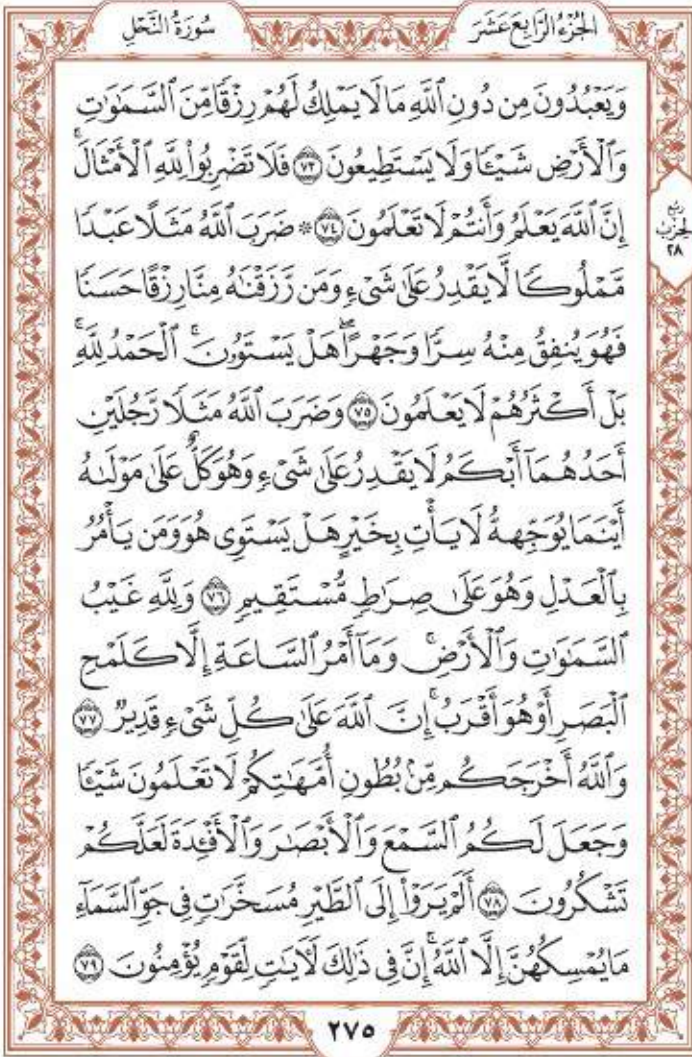 الجُزْءُ الرَّابِعَ عَشَرَ
سُورَةُ النَّحْلِ
وَيَعْبُدُونَ مِن دُونِ ٱللَّهِ مَا لَا يَمْلِكُ لَهُمْ رِزْقًا مِّنَ ٱلسَّمَٰوَٰتِ
وَٱلْأَرْضِ شَيْـًٔا وَلَا يَسْتَطِيعُونَ ٧٣ فَلَا تَضْرِبُوا۟ لِلَّهِ ٱلْأَمْثَالَ ۚ
إِنَّ ٱللَّهَ يَعْلَمُ وَأَنتُمْ لَا تَعْلَمُونَ ٧٤ ۞ ضَرَبَ ٱللَّهُ مَثَلًا عَبْدًا
مَّمْلُوكًا لَّا يَقْدِرُ عَلَىٰ شَىْءٍ وَمَن رَّزَقْنَٰهُ مِنَّا رِزْقًا حَسَنًا
فَهُوَ يُنفِقُ مِنْهُ سِرًّا وَجَهْرًا ۖ هَلْ يَسْتَوُۥنَ ۚ ٱلْحَمْدُ لِلَّهِ ۚ
بَلْ أَكْثَرُهُمْ لَا يَعْلَمُونَ ٧٥ وَضَرَبَ ٱللَّهُ مَثَلًا رَّجُلَيْنِ
أَحَدُهُمَآ أَبْكَمُ لَا يَقْدِرُ عَلَىٰ شَىْءٍ وَهُوَ كَلٌّ عَلَىٰ مَوْلَىٰهُ
أَيْنَمَا يُوَجِّههُّ لَا يَأْتِ بِخَيْرٍ هَلْ يَسْتَوِى هُوَ وَمَن يَأْمُرُ
بِٱلْعَدْلِ وَهُوَ عَلَىٰ صِرَٰطٍ مُّسْتَقِيمٍ ٧٦ وَلِلَّهِ غَيْبُ
ٱلسَّمَٰوَٰتِ وَٱلْأَرْضِ ۚ وَمَآ أَمْرُ ٱلسَّاعَةِ إِلَّا كَلَمْحِ
ٱلْبَصَرِ أَوْ هُوَ أَقْرَبُ ۚ إِنَّ ٱللَّهَ عَلَىٰ كُلِّ شَىْءٍ قَدِيرٌ ٧٧
وَٱللَّهُ أَخْرَجَكُم مِّنۢ بُطُونِ أُمَّهَٰتِكُمْ لَا تَعْلَمُونَ شَيْـًٔا
وَجَعَلَ لَكُمُ ٱلسَّمْعَ وَٱلْأَبْصَٰرَ وَٱلْأَفْـِٔدَةَ لَعَلَّكُمْ
تَشْكُرُونَ ٧٨ أَلَمْ يَرَوْا۟ إِلَى ٱلطَّيْرِ مُسَخَّرَٰتٍ فِى جَوِّ ٱلسَّمَآءِ
مَا يُمْسِكُهُنَّ إِلَّا ٱللَّهُ ۗ إِنَّ فِى ذَٰلِكَ لَـَٔايَٰتٍ لِّقَوْمٍ يُؤْمِنُونَ ٧٩
ربع
الحزب
٢٨
٢٧٥